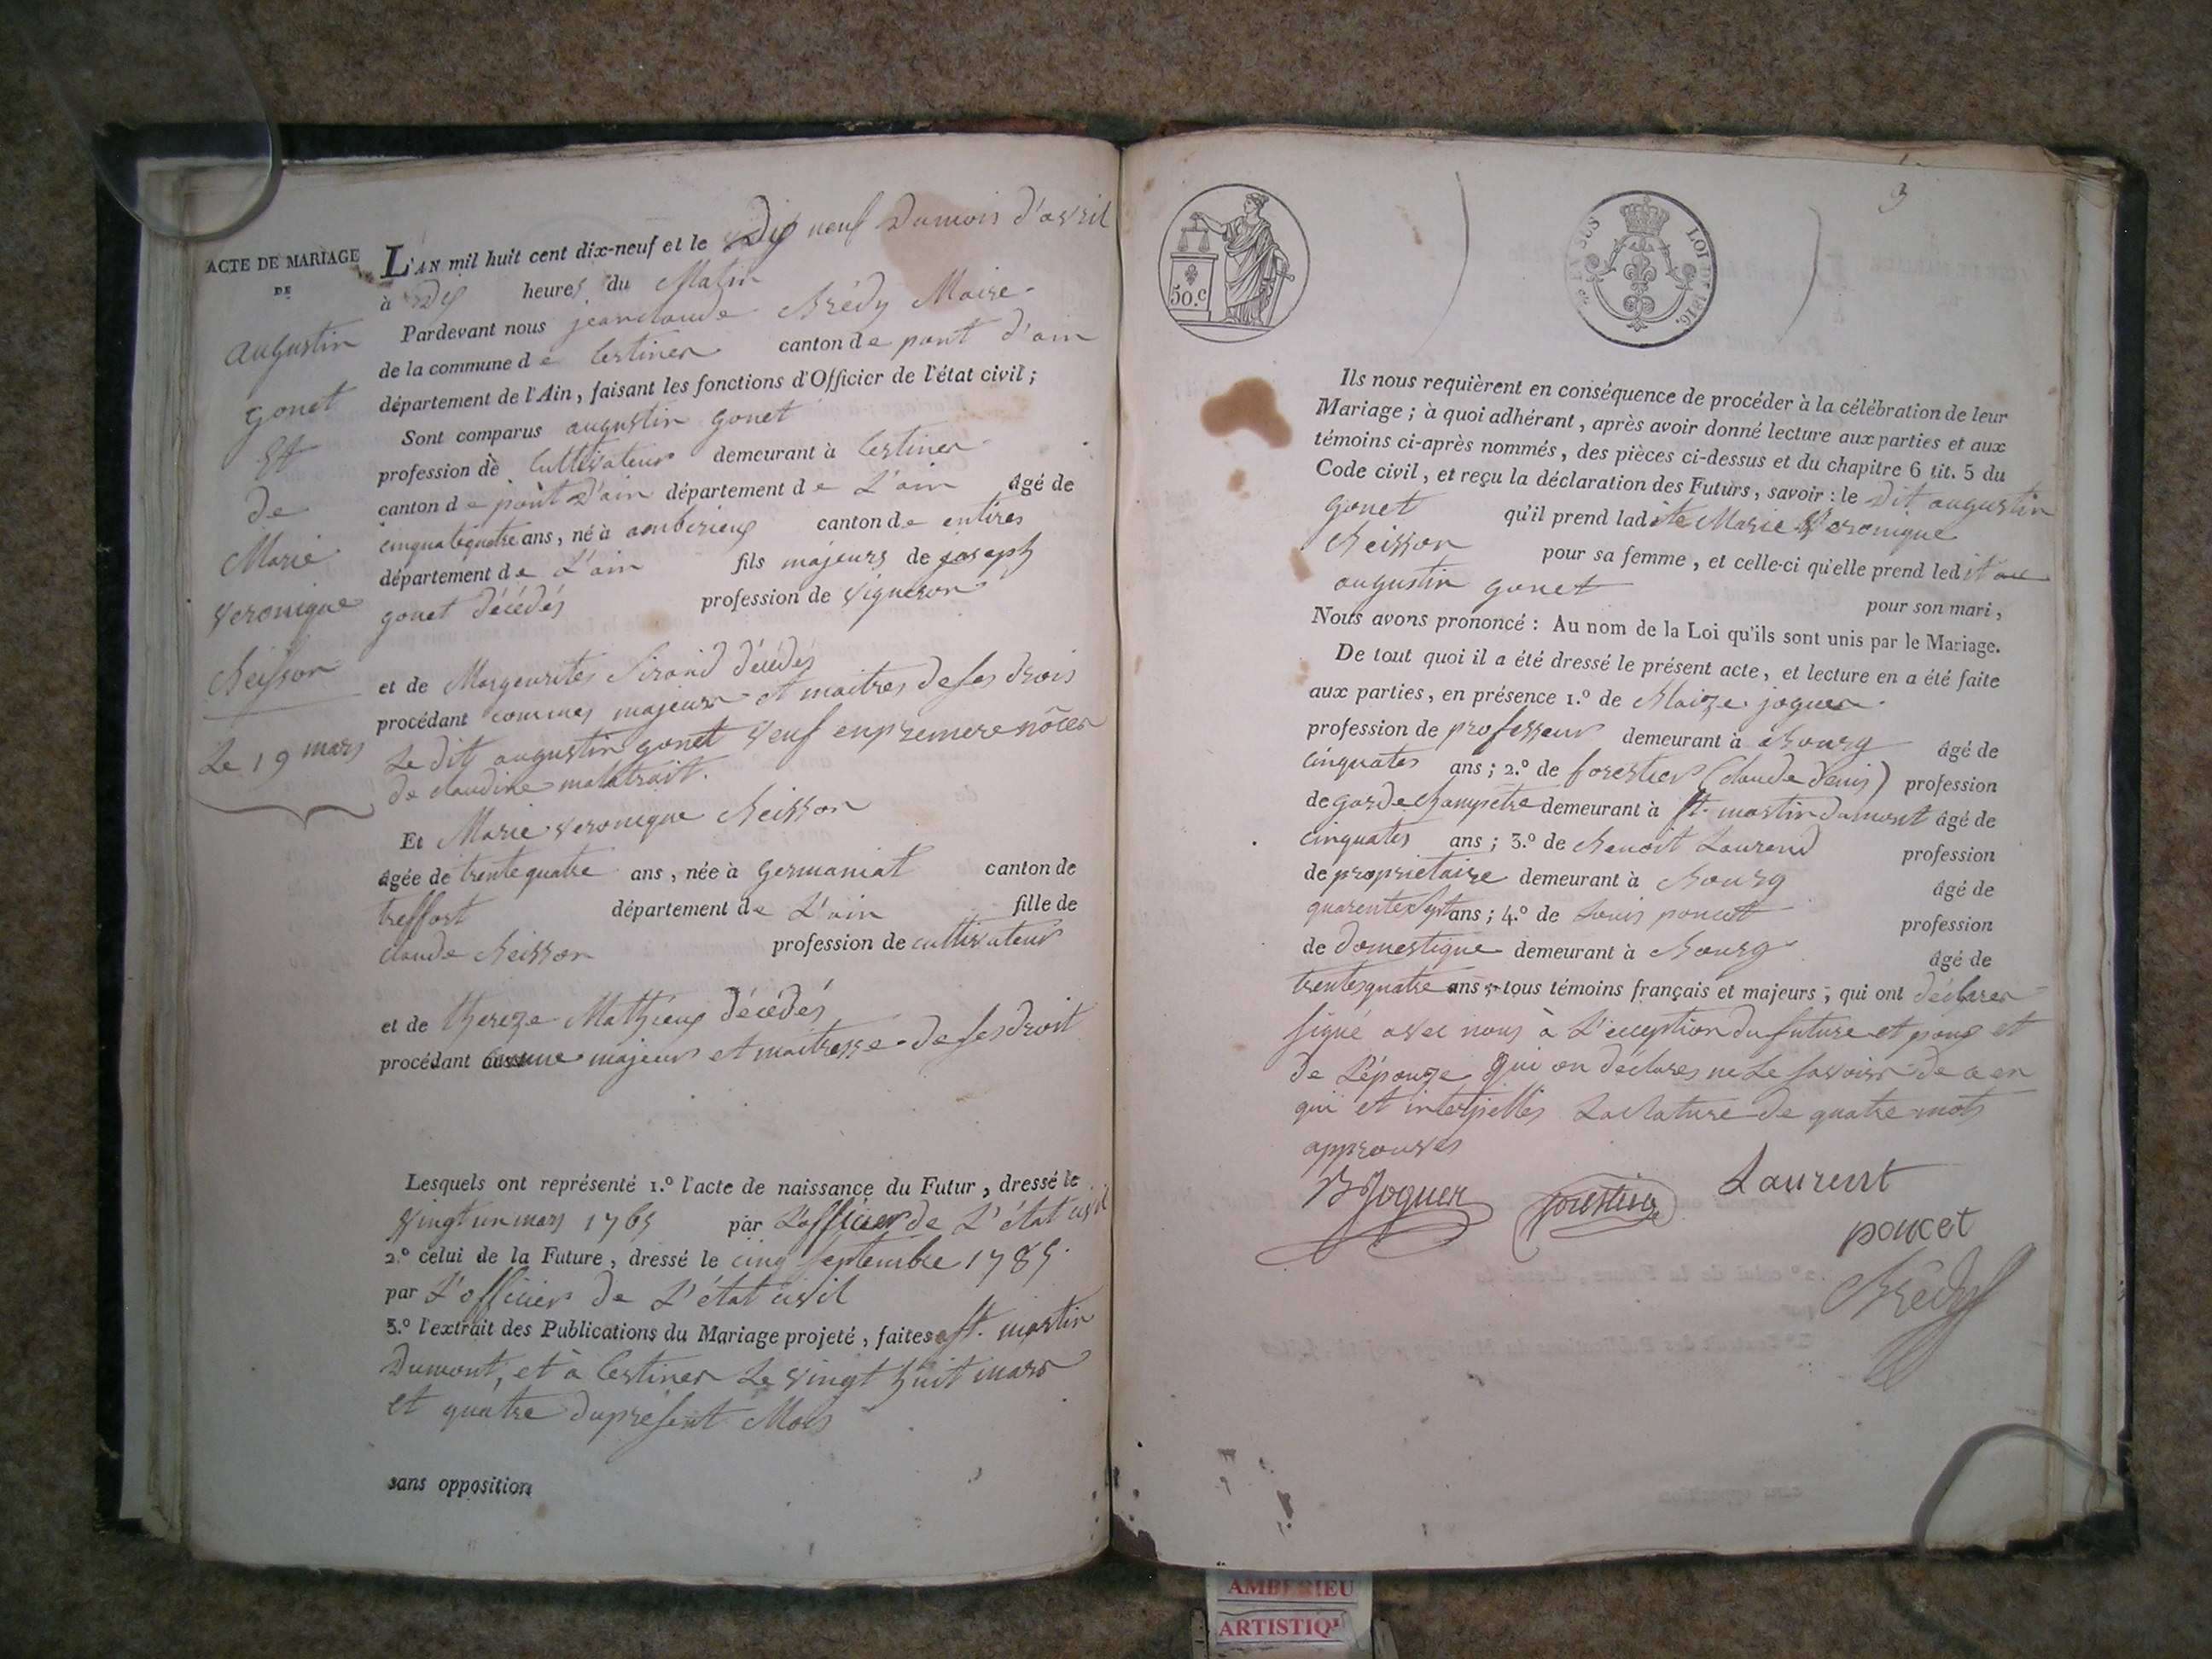 ACTE DE MARIAGE
DE
augustin
gonet
Et
de
Marie
veronique
Beisson
Le 19 mars
L'AN mil huit cent dix-neuf et le Dix neuf Dumois d'avril
à Dix heures du Matin
Pardevant nous jeanclaude Brédy Maire
de la commune de Certines canton de pont d'ain
département de l'Ain, faisant les fonctions d'Officier de l'état civil;
Sont comparus augustin gonet
profession de Cultivateur demeurant à Certines
canton de pont D'ain département de L'ain âgé de
cinquatequatre ans, né à ambérieux canton de
département de L'ain fils majeurs de joseph
gonet décédés profession de vigneron
et de Margeurites Sirand décédés
procédant commes majeurs et maitres de ses drois
Le dit augustin gonet veuf enpremere nôces
de claudine malatrait.
Et Marie veronique Beisson
âgée de trente quatre ans, née à germaniat canton de
treffort département de L'ain fille de
claude Beisson profession de cultivateur
et de thereze Mathieux décédés
procédant comme majeurs et maitresse de ses droit
Lesquels ont représenté 1.º l'acte de naissance du Futur, dressé le
vingt un mars 1765 par L'officier de L'état civil
2.º celui de la Future, dressé le cinq septembre 1785.
par L'officier de L'état civil
3.º l'extrait des Publications du Mariage projeté, faites a st. martin
Dumont, et à Certines Le vingt huit mars
et quatre dupresent Mois
sans opposition
3
50.c
LOI DE 1816.
Ils nous requièrent en conséquence de procéder à la célébration de leur
Mariage; à quoi adhérant, après avoir donné lecture aux parties et aux
témoins ci-après nommés, des pièces ci-dessus et du chapitre 6 tit. 5 du
Code civil, et reçu la déclaration des Futurs, savoir: le Dit augustin
gonet qu'il prend ladite Marie Veronique
Beisson pour sa femme, et celle-ci qu'elle prend ledit
augustin gonet pour son mari,
Nous avons prononcé: Au nom de la Loi qu'ils sont unis par le Mariage.
De tout quoi il a été dressé le présent acte, et lecture en a été faite
aux parties, en présence 1.º de Blaize joguer
profession de professeur demeurant à Bourg âgé de
cinquates ans; 2.º de forestier (claude denis) profession
de garde champetre demeurant à st. martin dumont âgé de
cinquates ans; 3.º de Benoit Laurend profession
de proprietaire demeurant à Bourg âgé de
quarente sept ans; 4.º de Louis poncet profession
de Domestique demeurant à Bourg âgé de
trentesquatre ans tous témoins français et majeurs, qui ont déclarer
signé avec nous à L'eception du future et et
de L'épouze Qui on déclares ne Le savoir de ce en
qui et interpellés La Rature de quatre mots
approuves
B Joguer forestier Laurent
poncet
Brédy
AMBERIEU
ARTISTIQU